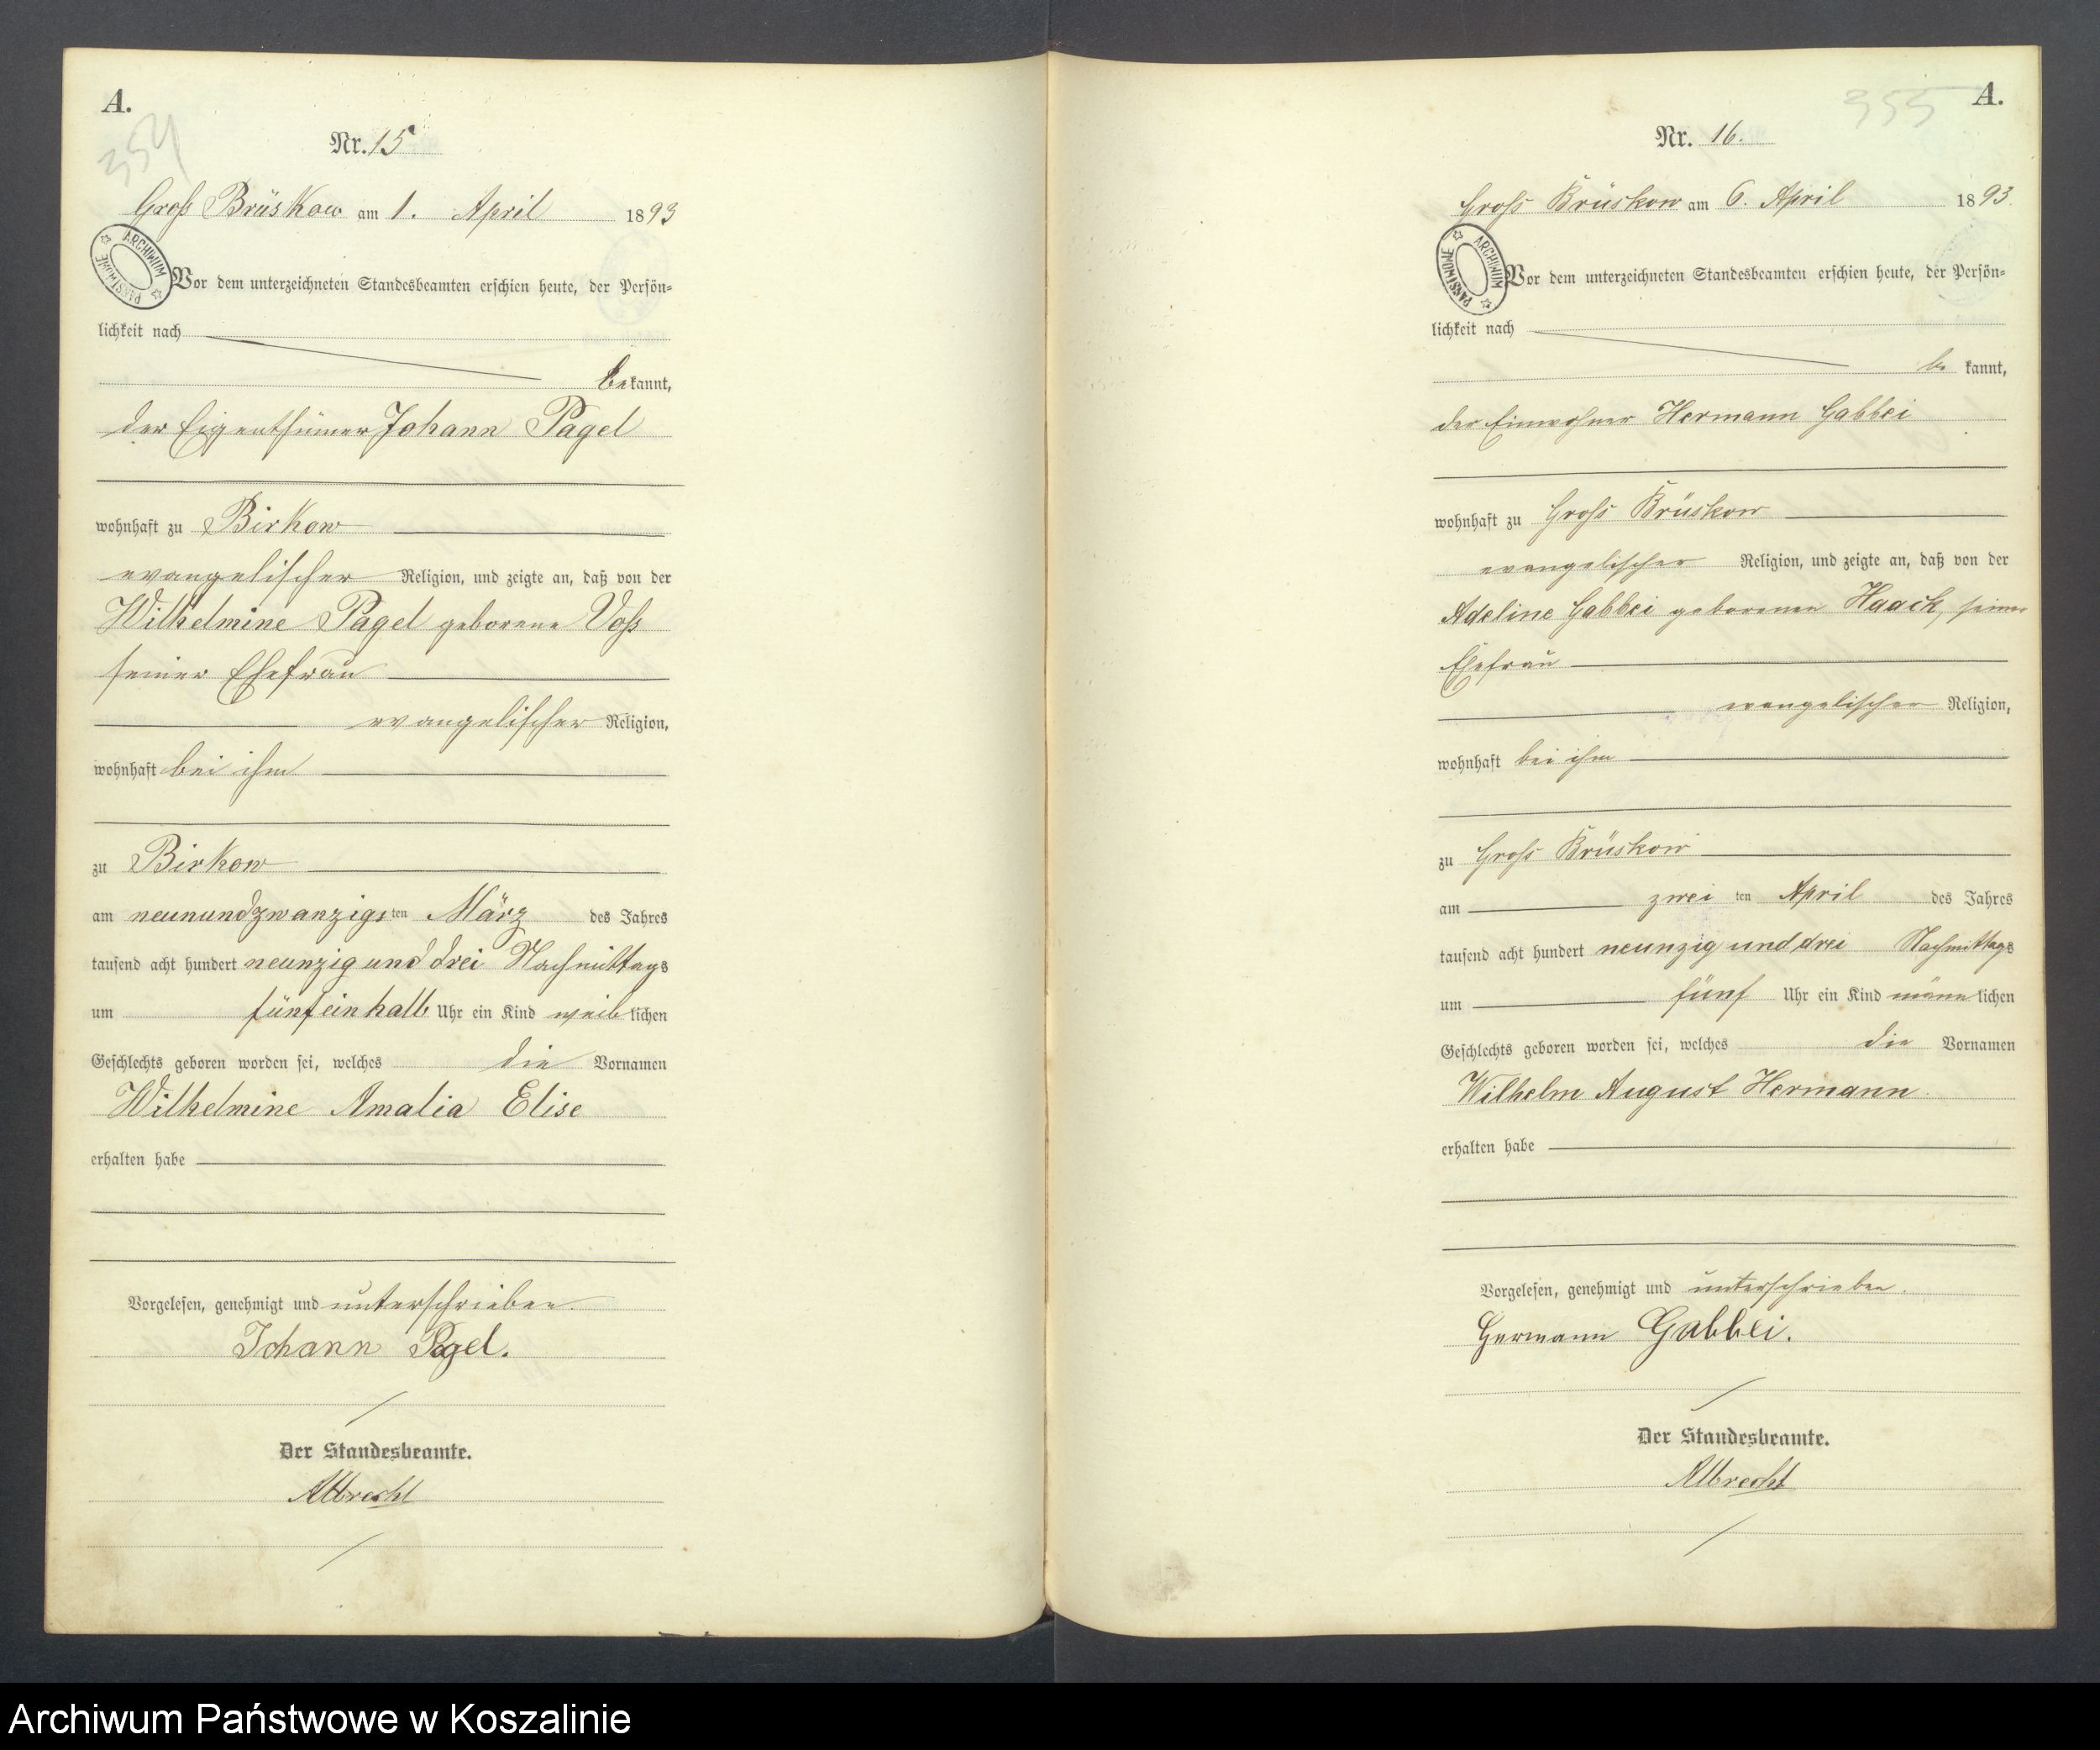 A.
354
Nr. 15
Groß Brüskow am 1. April 1893
ARCHIWUM PAŃSTWOWE
Vor dem unterzeichneten Standesbeamten erschien heute, der Persön=
lichkeit nach
bekannt,
der Eigenthümer Johann Pagel
wohnhaft zu Birkow
evangelischer Religion, und zeigte an, daß von der
Wilhelmine Pagel geborene Voß
seiner Ehefrau
evangelischer Religion,
wohnhaft bei ihm
zu Birkow
am neunundzwanzigsten März des Jahres
tausend acht hundert neunzig und drei Nachmittags
um fünfeinhalb Uhr ein Kind weiblichen
Geschlechts geboren worden sei, welches die Vornamen
Wilhelmine Amalia Elise
erhalten habe
Vorgelesen, genehmigt und unterschrieben.
Johann Pagel.
Der Standesbeamte.
Albrecht
A.
355
Nr. 16.
Groß Brüskow am 6. April 1893.
ARCHIWUM PAŃSTWOWE
Vor dem unterzeichneten Standesbeamten erschien heute, der Persön=
lichkeit nach
be kannt,
der Einwohner Hermann Gabbei
wohnhaft zu Groß Brüskow
evangelischer Religion, und zeigte an, daß von der
Adeline Gabbei geborenen Haack, seiner
Ehefrau
evangelischer Religion,
wohnhaft bei ihm
zu Groß Brüskow
am zwei ten April des Jahres
tausend acht hundert neunzig und drei Nachmittags
um fünf Uhr ein Kind männlichen
Geschlechts geboren worden sei, welches die Vornamen
Wilhelm August Hermann
erhalten habe
Vorgelesen, genehmigt und unterschrieben.
Hermann Gabbei.
Der Standesbeamte.
Albrecht
Archiwum Państwowe w Koszalinie